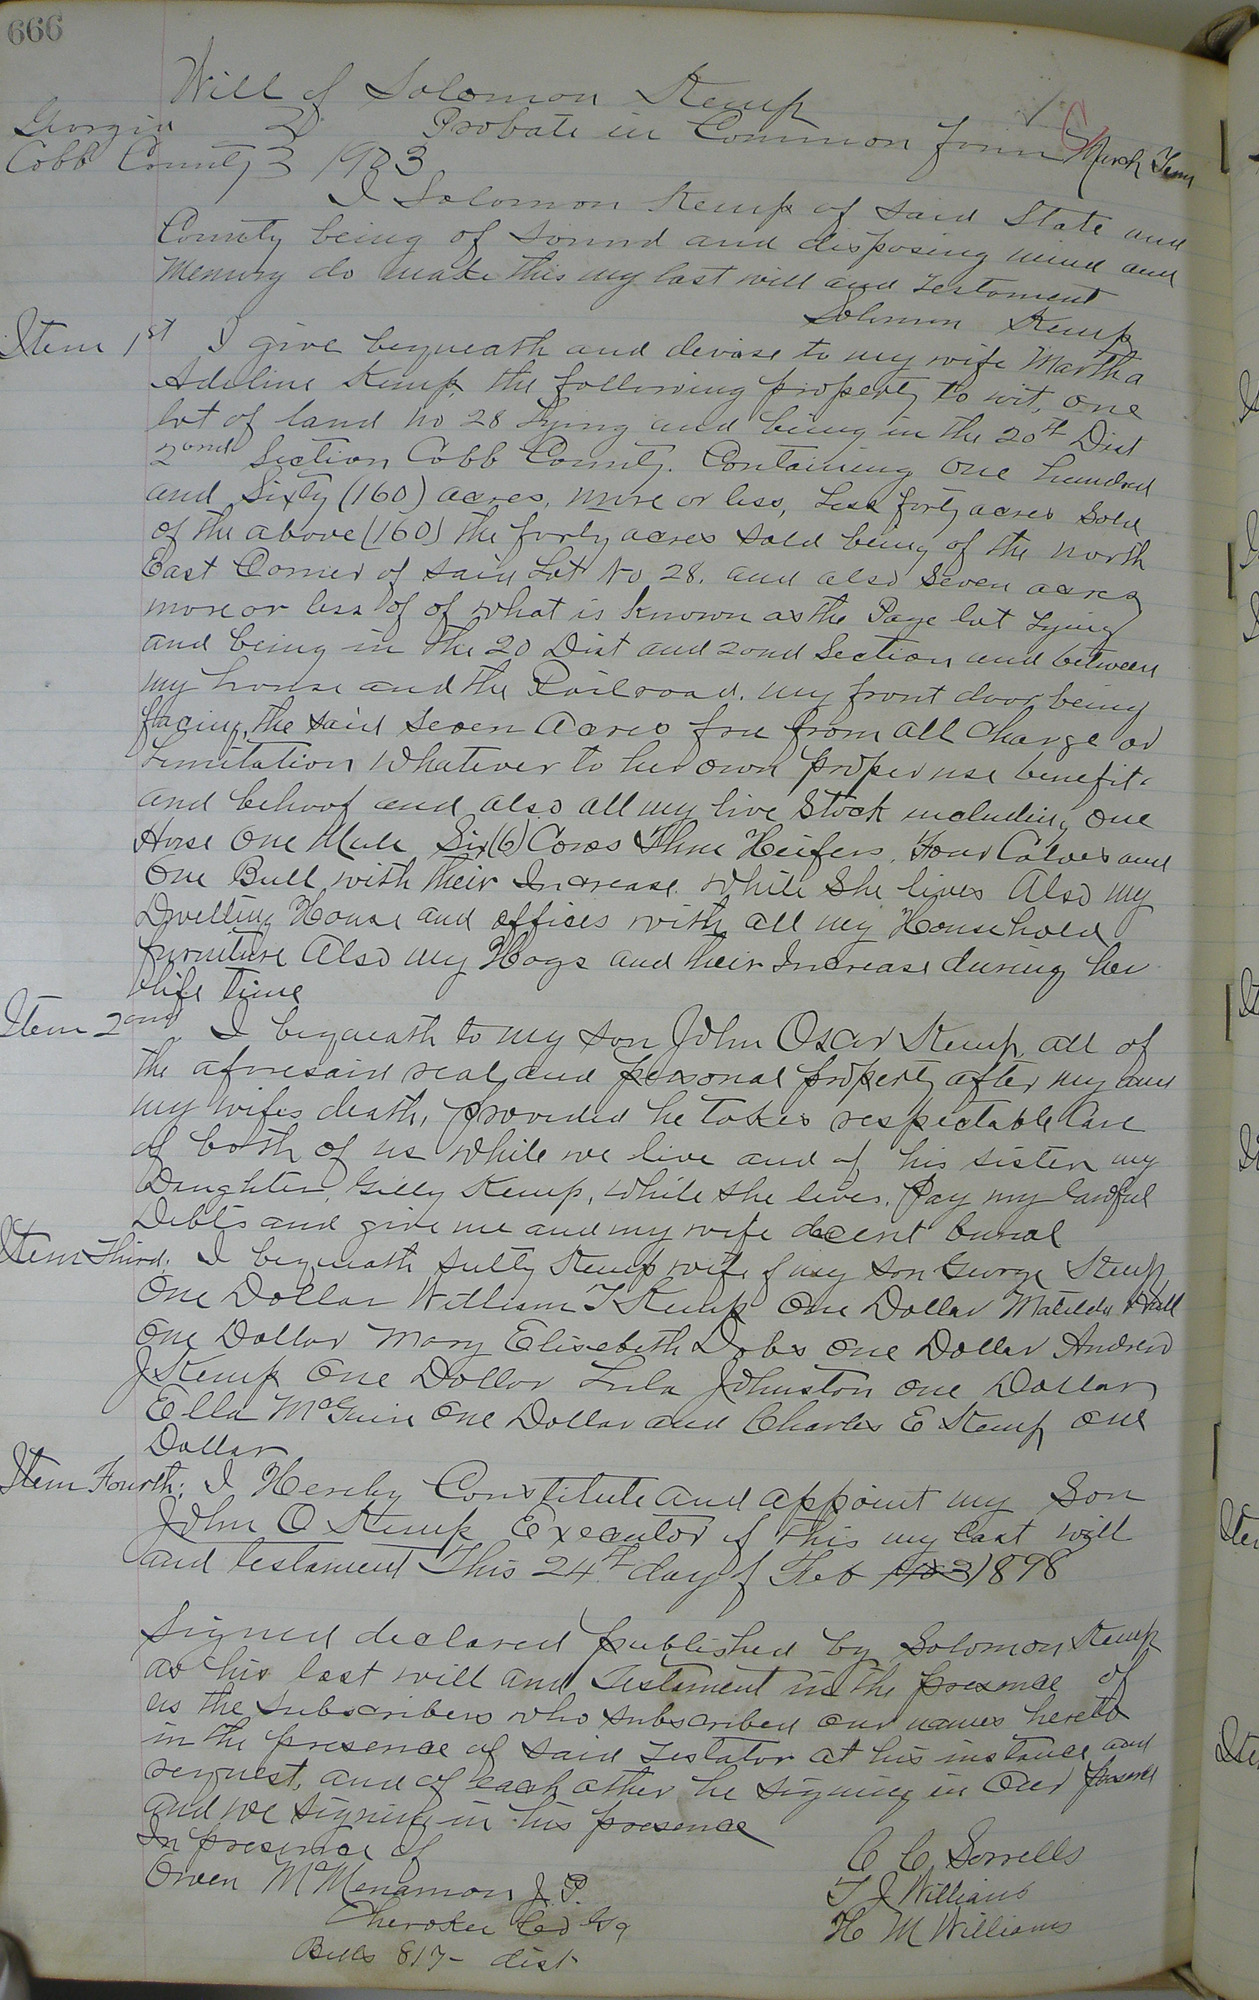 666
Will of Solomon Kemp
Georgia } Probate in Common form March Term
Cobb County } 1903
I Solomon Kemp of said State and
County being of sound and disposing mind and
Memory do make this my last will and Testament
Solomon Kemp
Item 1st I give bequeath and devise to my wife Martha
Adeline Kemp, the following property to wit, one
lot of land no 28 lying and being in the 20th Dist
2ond Section Cobb County. Containing one hundred
and Sixty (160) acres, more or less, Less forty acres Sold
of the above (160) the forty acres sold being of the north
East Corner of said Lot No 28. and also Seven acres
more or less of of what is known as the Page lot Lying
and being in the 20 Dist and 2ond Section and between
my house and the Railroad. my front door being
facing, the said Seven Acres free from all Charge or
Limitation Whatever to her own proper use benefit
and behoof and also all my live Stock including one
Horse One Mule Six (6) Cows Three Heifers, Four Calves and
One Bull with their Increase while She lives Also my
Dwelling House and offices with all my Household
furniture Also my Hogs and their Increase during her
life time
Item 2ond I bequeath to my son John Oscar Kemp all of
the aforesaid real and personal property after my and
my wifes death, provided he takes respectable Care
of both of us while we live and of his sister my
Daughter, Gilly Kemp, while she lives. Pay my lawful
Debts and give me and my wife decent burial
Item Third; I bequeath Kemp wife of my son George Kemp
One Dollar William T Kemp One Dollar Matilda
One Dollar Mary Elisebeth Dobs One Dollar Andrew
J Kemp One Dollar Lula Johnston one Dollar
Ella McGuire One Dollar and Charles E Kemp one
Dollar
Item Fourth; I Hereby Constitute and appoint my Son
John O Kemp Executor of this my last will
and testament This 24th day of Feb 1903 1898
Signed declared published by Solomon Kemp
as his last will and Testament in the presence of
us the subscribers who subscribed our names hereto
in the presence of said Testator at his instance and
request, and of each other he signing in our presence
and we signing in his presence
In presence of
C C Sorrells
Owen McMenamon J. P. T J Williams
Cherokee Co Ga H M Williams
Bells 817- dist